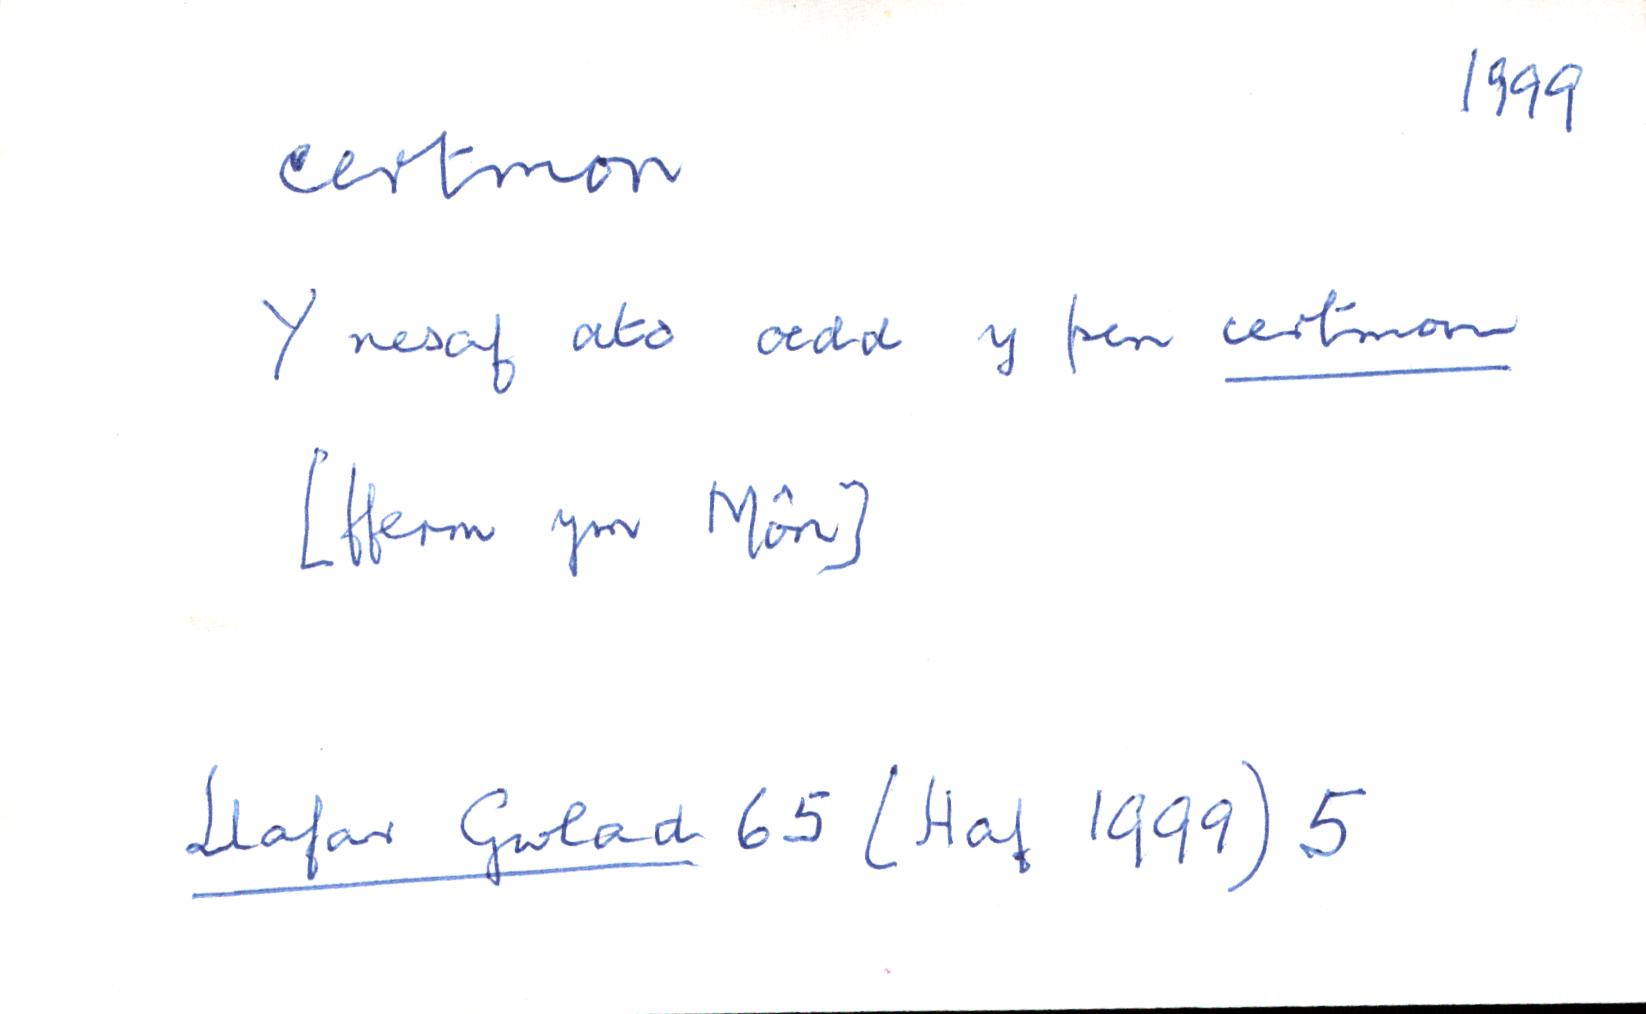 1999
certmon
Y nesaf ato oedd y pen certmon
[fferm ym Môn]
Llafar Gwlad 65 (Haf 1999) 5